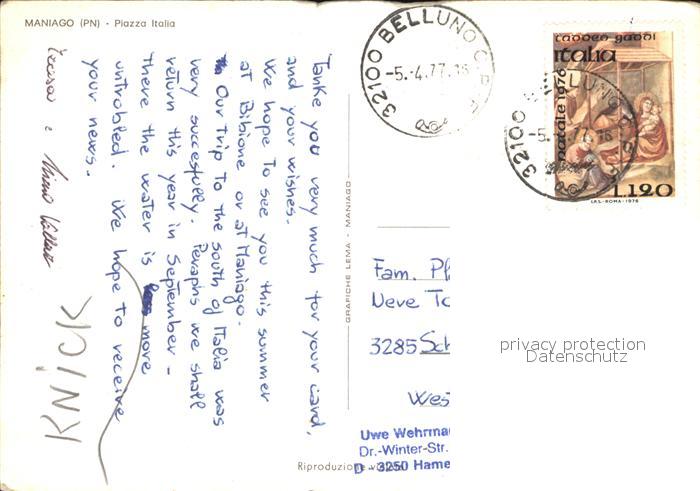 MANIAGO (PN) - Piazza Italia
Tanke you very much for your card,
and your wishes.
We hope to see you this summer
at Bibione or at Maniago.
Our trip to the south of Italia was
very succesfully. Peraphs we shall
return this year in September -
there the water is more
untrobled. We hope to receive
your news.
KNiCK
GRAFICHE LEMA - MANIAGO
Riproduzione
32100 BELLUNO C.P.
-5.-4.77.-18
32100 BELLUNO
-5.
77.-18
taddeo gaddi
italia
natale 1976
L.120
I.P.S.-ROMA-1976
Fam. Pf
Neve To
3285 Sch
Wes
Uwe Wehrma
Dr.-Winter-Str.
D - 3250 Hame
privacy protection
Datenschutz